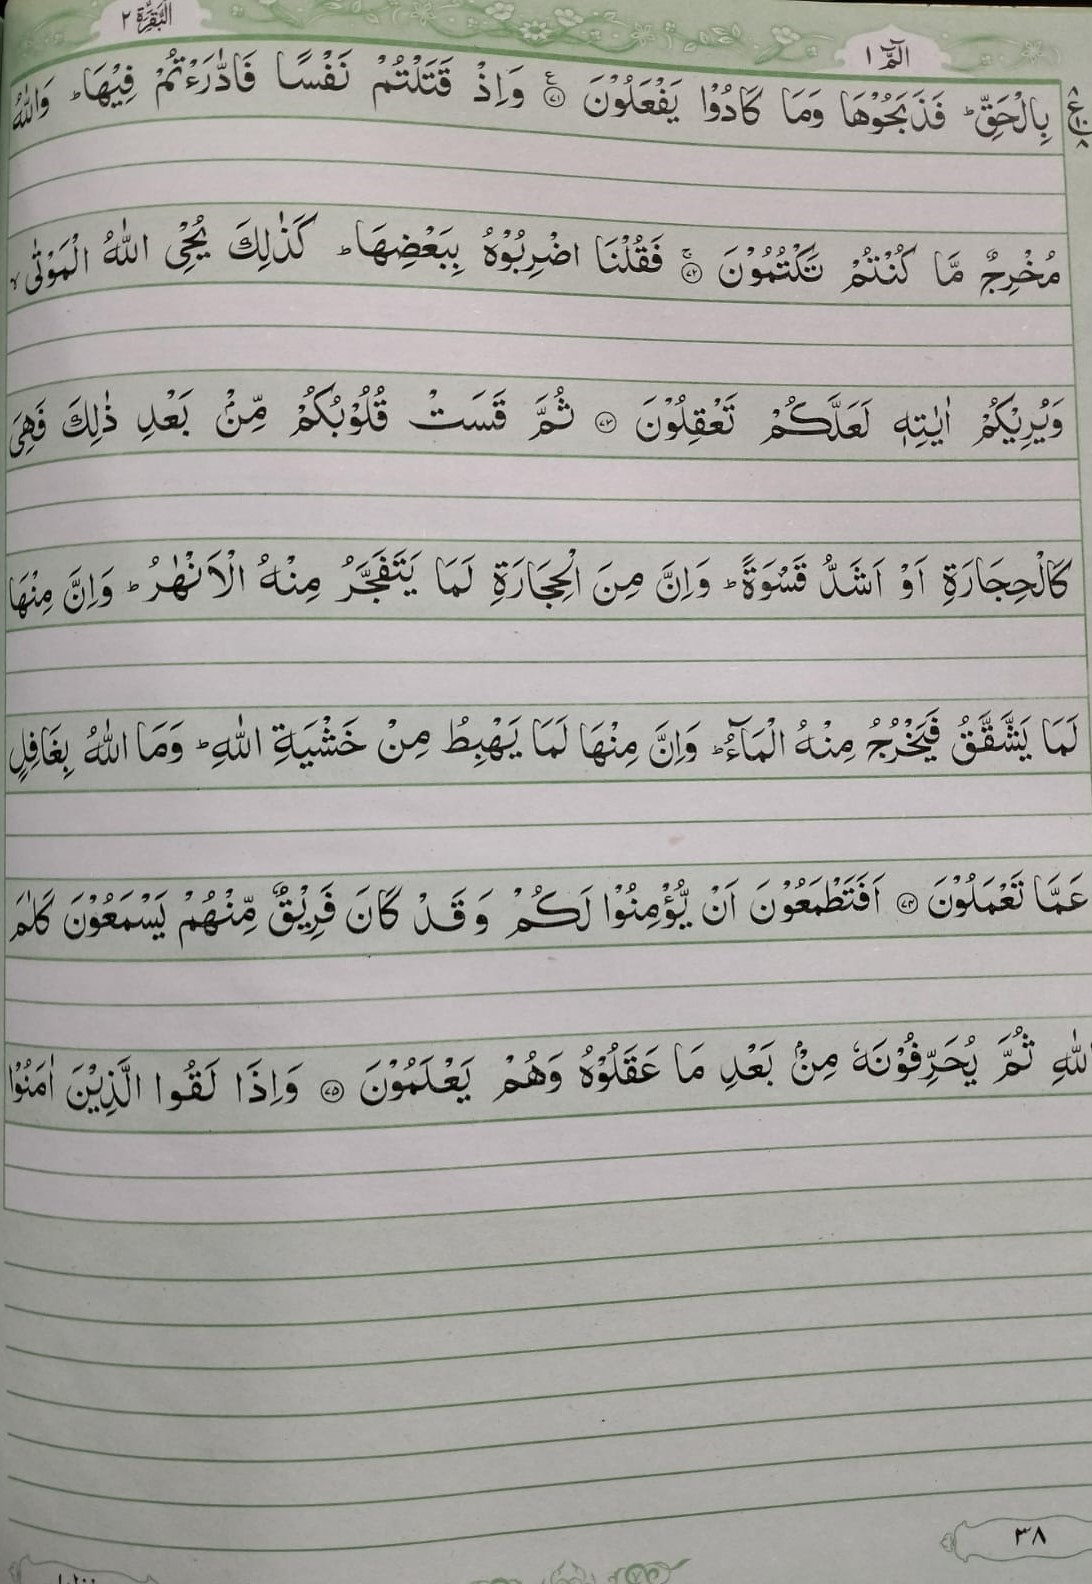 الٓمّٓ ١
البقرة ٢
بِالْحَقِّ ؕ فَذَبَحُوْهَا وَمَا كَادُوْا يَفْعَلُوْنَ ﴿۷۱﴾ وَاِذْ قَتَلْتُمْ نَفْسًا فَادّٰرَءْتُمْ فِيْهَا ؕ وَاللّٰهُ
مُخْرِجٌ مَّا كُنْتُمْ تَكْتُمُوْنَ ﴿۷۲﴾ فَقُلْنَا اضْرِبُوْهُ بِبَعْضِهَا ؕ كَذٰلِكَ يُحْيِ اللّٰهُ الْمَوْتٰى ۙ
وَيُرِيْكُمْ اٰيٰتِهٖ لَعَلَّكُمْ تَعْقِلُوْنَ ﴿۷۳﴾ ثُمَّ قَسَتْ قُلُوْبُكُمْ مِّنْۢ بَعْدِ ذٰلِكَ فَهِيَ
كَالْحِجَارَةِ اَوْ اَشَدُّ قَسْوَةً ؕ وَاِنَّ مِنَ الْحِجَارَةِ لَمَا يَتَفَجَّرُ مِنْهُ الْاَنْهٰرُ ؕ وَاِنَّ مِنْهَا
لَمَا يَشَّقَّقُ فَيَخْرُجُ مِنْهُ الْمَآءُ ؕ وَاِنَّ مِنْهَا لَمَا يَهْبِطُ مِنْ خَشْيَةِ اللّٰهِ ؕ وَمَا اللّٰهُ بِغَافِلٍ
عَمَّا تَعْمَلُوْنَ ﴿۷۴﴾ اَفَتَطْمَعُوْنَ اَنْ يُّؤْمِنُوْا لَكُمْ وَقَدْ كَانَ فَرِيْقٌ مِّنْهُمْ يَسْمَعُوْنَ كَلٰمَ
اللّٰهِ ثُمَّ يُحَرِّفُوْنَهٗ مِنْۢ بَعْدِ مَا عَقَلُوْهُ وَهُمْ يَعْلَمُوْنَ ﴿۷۵﴾ وَاِذَا لَقُوا الَّذِيْنَ اٰمَنُوْا
٣٨